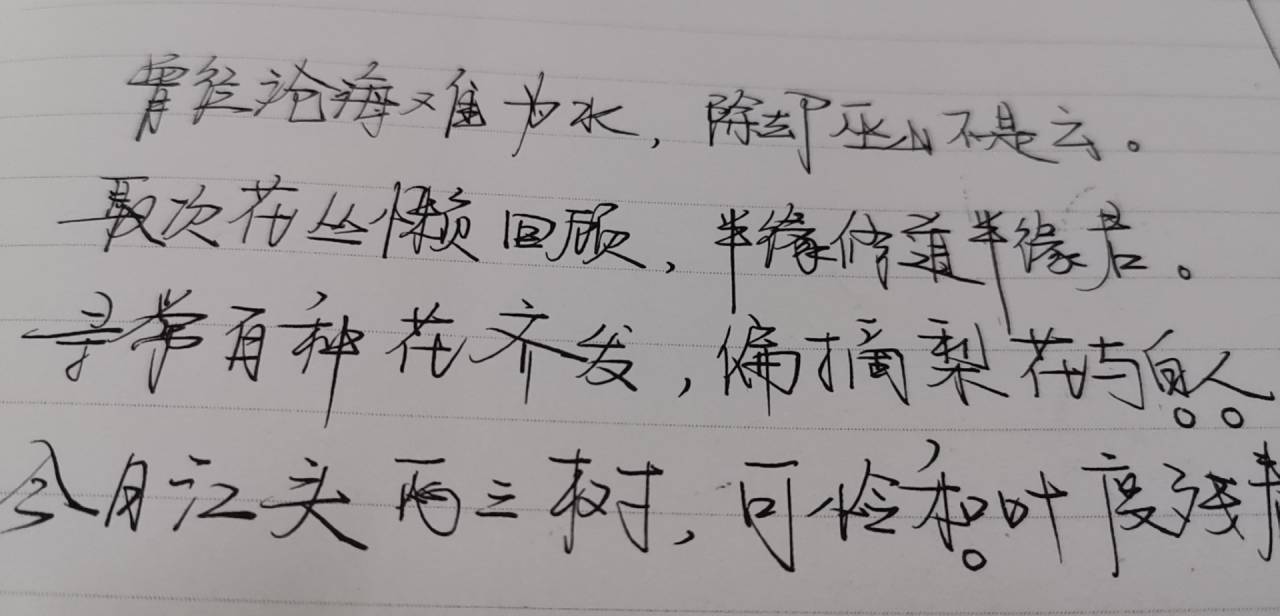 曾经沧海难为水，除却巫山不是云。
取次花丛懒回顾，半缘修道半缘君。
寻常百种花齐发，偏摘梨花与白人。
今日江头两三树，可怜和叶度残